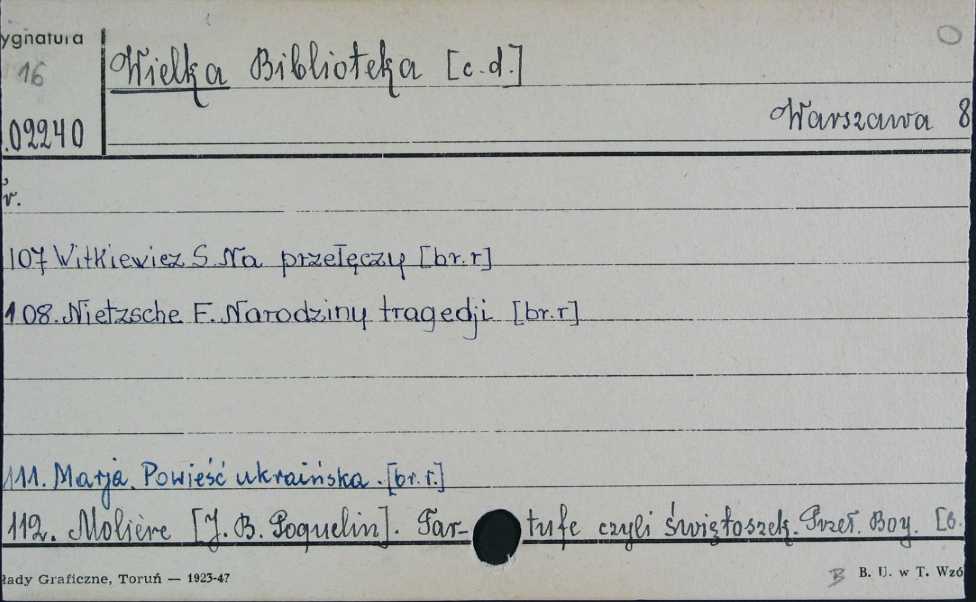 ygnatura
16
Wielka Biblioteka [c.d.]
.02240
Warszawa 8
r.
107 Witkiewicz S. Na przełęczy [br.r]
108. Nietzsche F. Narodziny tragedji [br.r]
111. Marja. Powieść ukraińska. [br.r.]
112. Molière [J. B. Poquelin]. Tar- tufe czyli świętoszek. Przeł. Boy. [b.
łady Graficzne, Toruń — 1923-47
B B. U. w T. Wzó